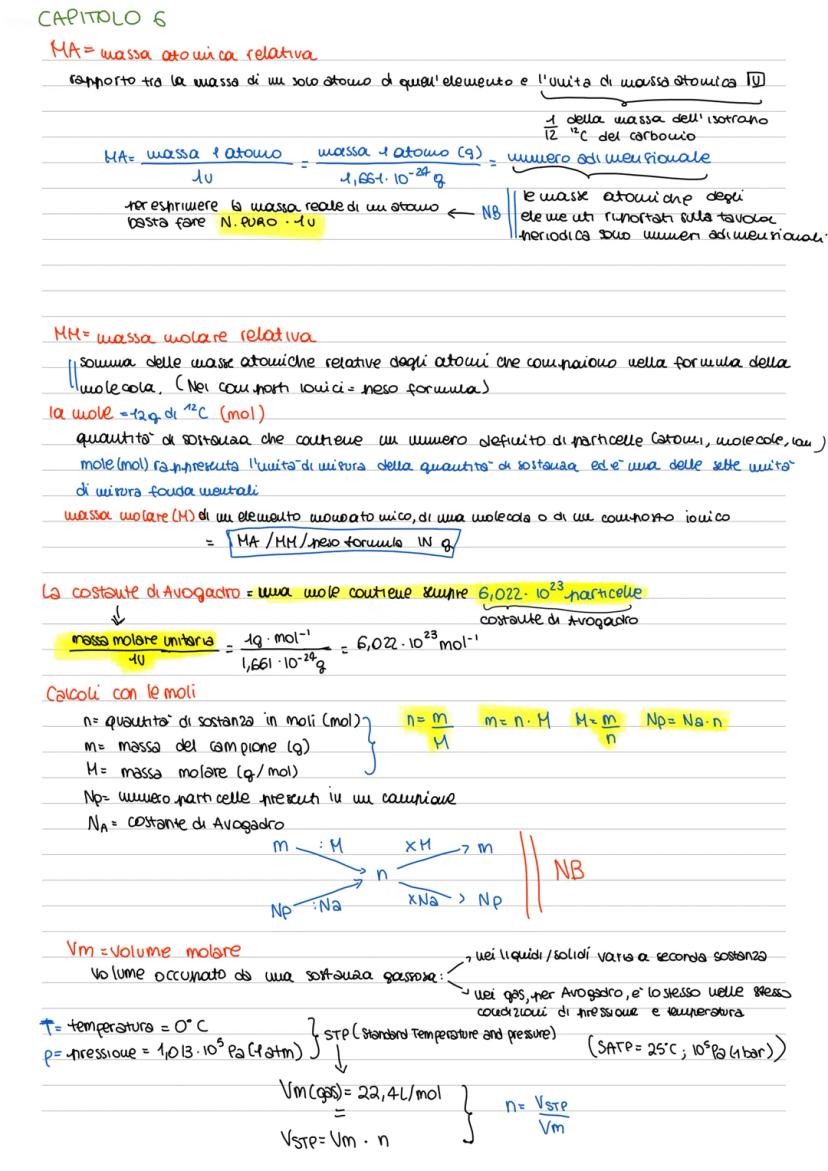 CAPITOLO 6
MA= massa atomica relativa
rapporto tra la massa di un solo atomo di quell'elemento e l'unità di massa atomica U
1/12 della massa dell'isotropo ¹²C del carbonio
MA= massa 1 atomo / 1U = massa 1 atomo (g) / 1,661·10⁻²⁴ g = numero adimensionale
per esprimere la massa reale di un atomo ← NB le masse atomiche degli
basta fare N. PURO · 1U elementi riportati sulla tavola
periodica sono numeri adimensionali.
MM= massa molare relativa
somma delle masse atomiche relative degli atomi che compaiono nella formula della
molecola. (Nei composti ionici = peso formula)
la mole = 12g di ¹²C (mol)
quantità di sostanza che contiene un numero definito di particelle (atomi, molecole, ioni)
mole (mol) rappresenta l'unità di misura della quantità di sostanza ed è una delle sette unità
di misura fondamentali
massa molare (M) di un elemento monoatomico, di una molecola o di un composto ionico
= MA / MM / peso formula IN g
La costante di Avogadro = una mole contiene sempre 6,022· 10²³ particelle
costante di Avogadro
massa molare unitaria / 1U = 1g · mol⁻¹ / 1,661 · 10⁻²⁴ g = 6,022 · 10²³ mol⁻¹
Calcoli con le moli
n= quantità di sostanza in moli (mol) n= m/M m= n · M M= m/n Np= Na · n
m= massa del campione (g)
M= massa molare (g/mol)
Np= numero particelle presenti in un campione
NA = costante di Avogadro
m :M xM → m
n NB
Np :Na xNa → Np
Vm = volume molare
volume occupato da una sostanza gassosa:
→ nei liquidi/solidi varia a seconda sostanza
→ nei gas, per Avogadro, è lo stesso nelle stesse
condizioni di pressione e temperatura
T= temperatura = 0°C
p= pressione = 1,013· 10⁵ Pa (1 atm)
STP (Standard Temperature and pressure) (SATP= 25°C ; 10⁵ Pa (1 bar))
Vm (gas) = 22,4 L/mol
=
VSTP= Vm · n
n= VSTP / Vm